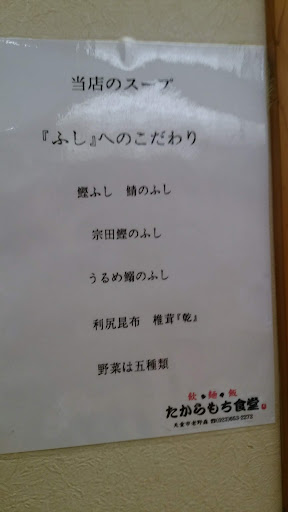 当店のスープ
『ふし』へのこだわり
鰹ふし　鯖のふし
宗田鰹のふし
うるめ鰯のふし
利尻昆布　椎茸『乾』
野菜は五種類
飲・麺・飯
たからもち食堂